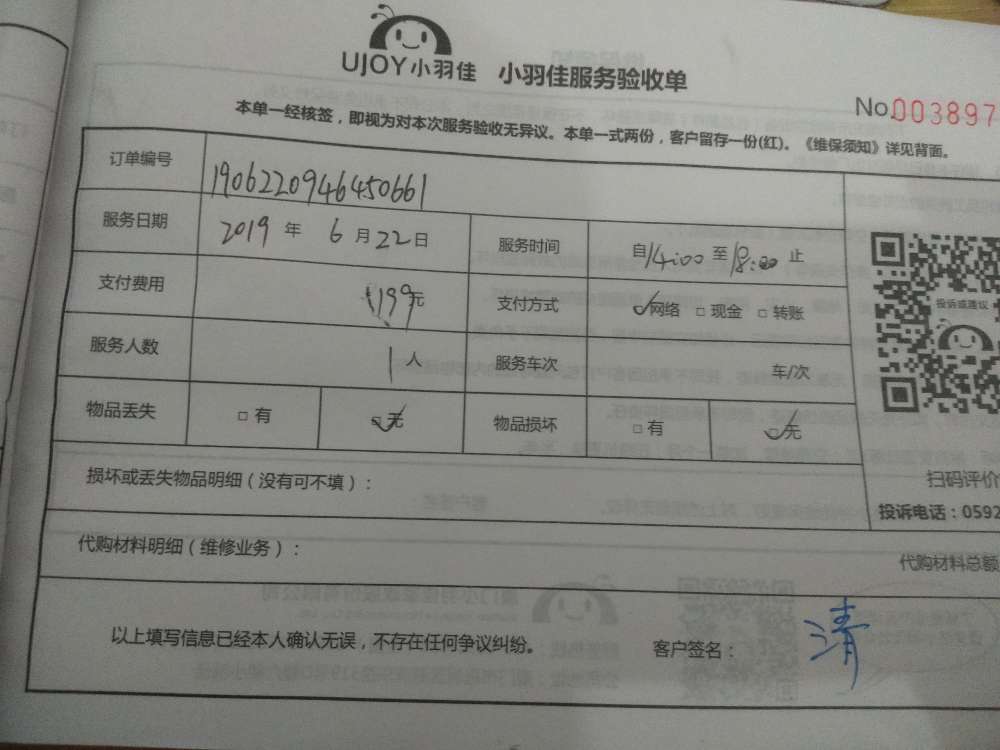 UJOY小羽佳 小羽佳服务验收单
No.003897
本单一经核签，即视为对本次服务验收无异议。本单一式两份，客户留存一份(红)。《维保须知》详见背面。
订单编号 1906220946450661
服务日期 2019 年 6 月 22 日 服务时间 自 14:00 至 18:00 止
支付费用 199元 支付方式 ☑网络 □ 现金 □ 转账
投诉或建议
服务人数 1 人 服务车次 车/次
物品丢失 □ 有 ☑ 无 物品损坏 □ 有 ☑ 无
损坏或丢失物品明细（没有可不填）：
扫码评价
投诉电话：0592
代购材料明细（维修业务）：
代购材料总额
以上填写信息已经本人确认无误，不存在任何争议纠纷。 客户签名： 清